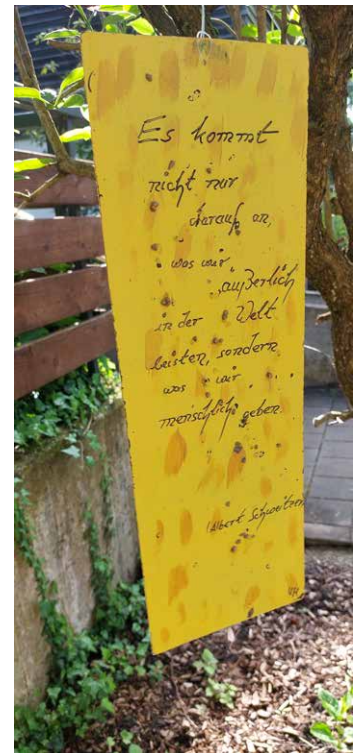 Es kommt
nicht nur
darauf an,
was wir
äußerlich
in der Welt
leisten, sondern
was wir
menschlich geben.
Albert Schweitzer